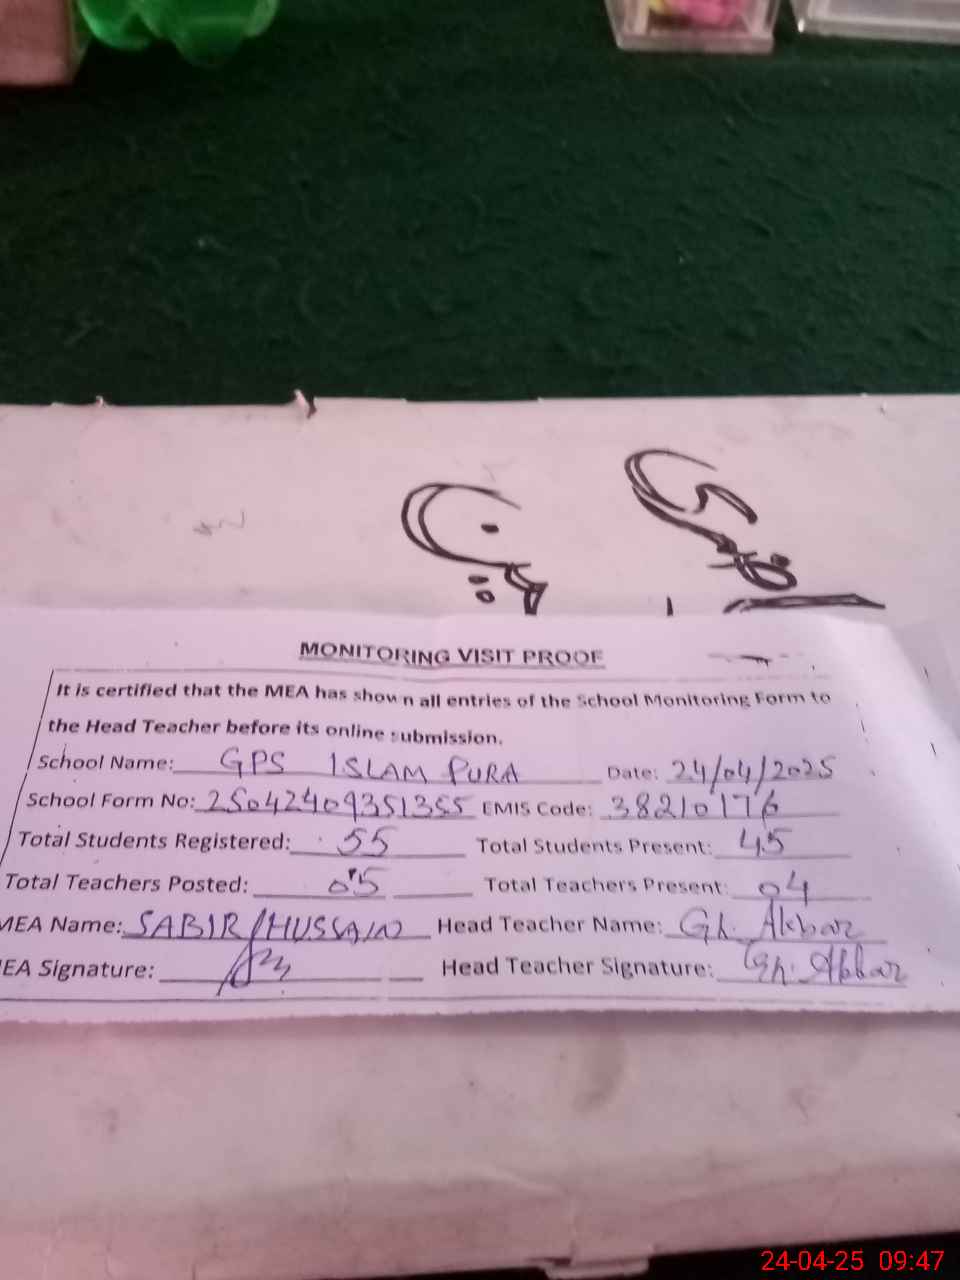 MONITORING VISIT PROOF
It is certified that the MEA has shown all entries of the School Monitoring Form to
the Head Teacher before its online submission.
School Name: GPS ISLAM PURA Date: 24/04/2025
School Form No: 25042409351355 EMIS Code: 38210176
Total Students Registered: 55 Total Students Present: 45
Total Teachers Posted: 05 Total Teachers Present: 04
MEA Name: SABIR HUSSAIN Head Teacher Name: Gh. Akbar
EA Signature: Head Teacher Signature: Gh. Akbar
24-04-25 09:47